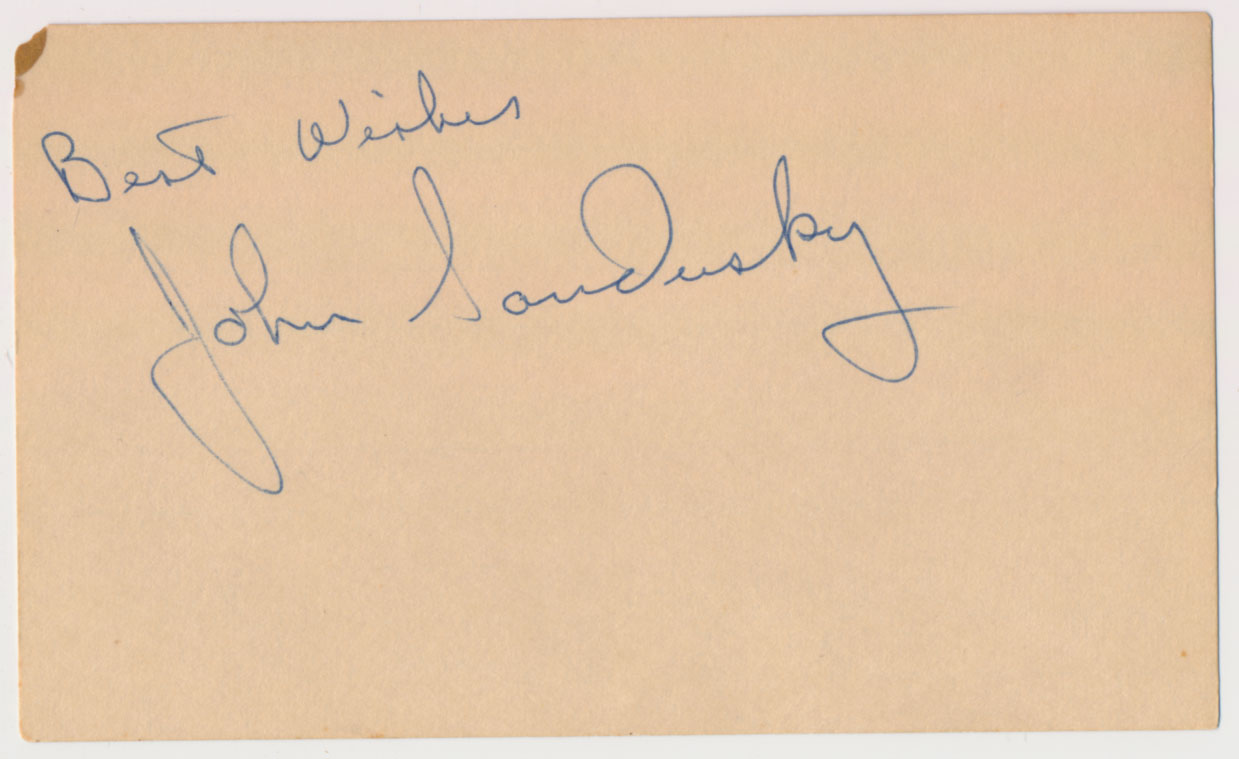 Best Wishes
John Sandusky